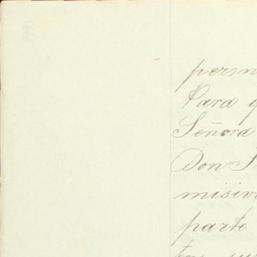 perm
Para q
Señora
Don S
misiv
parte